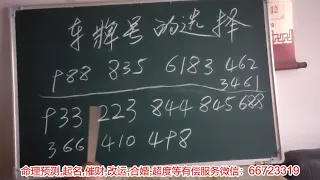 车牌号的选择
988 835 6183 462
3461
933 223 844 845 688
366 410 498
12
命理预测.起名,催财.改运,合婚.超度等有偿服务微信：66723319